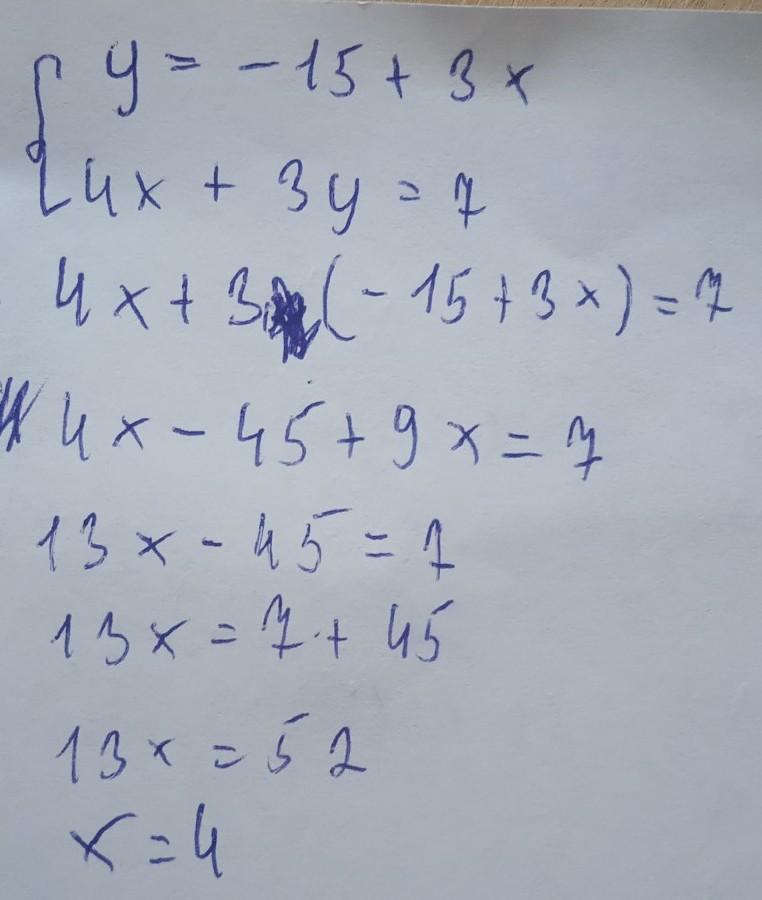 y = -15 + 3x
4x + 3y = 7
4x + 3 (-15 + 3x) = 7
4x - 45 + 9x = 7
13x - 45 = 7
13x = 7 + 45
13x = 52
x = 4